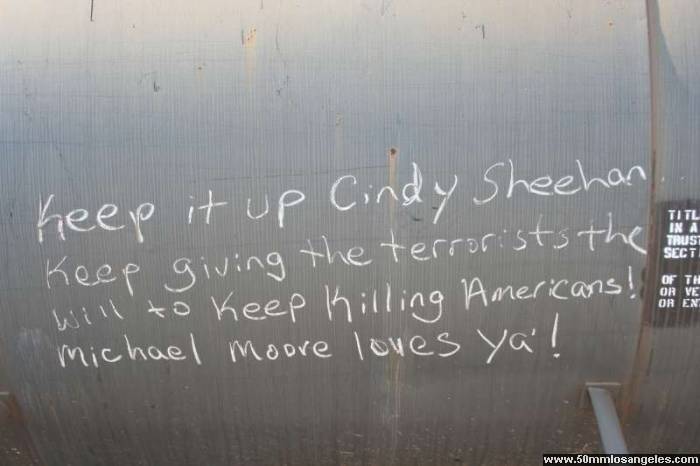 Keep it up Cindy Sheehan..
Keep giving the terrorists the
will to keep killing Americans!
Michael Moore loves ya'!
TITL
IN A
TRUST
SECT
OF TH
OR VE
OR EN
www.50mmlosangeles.com